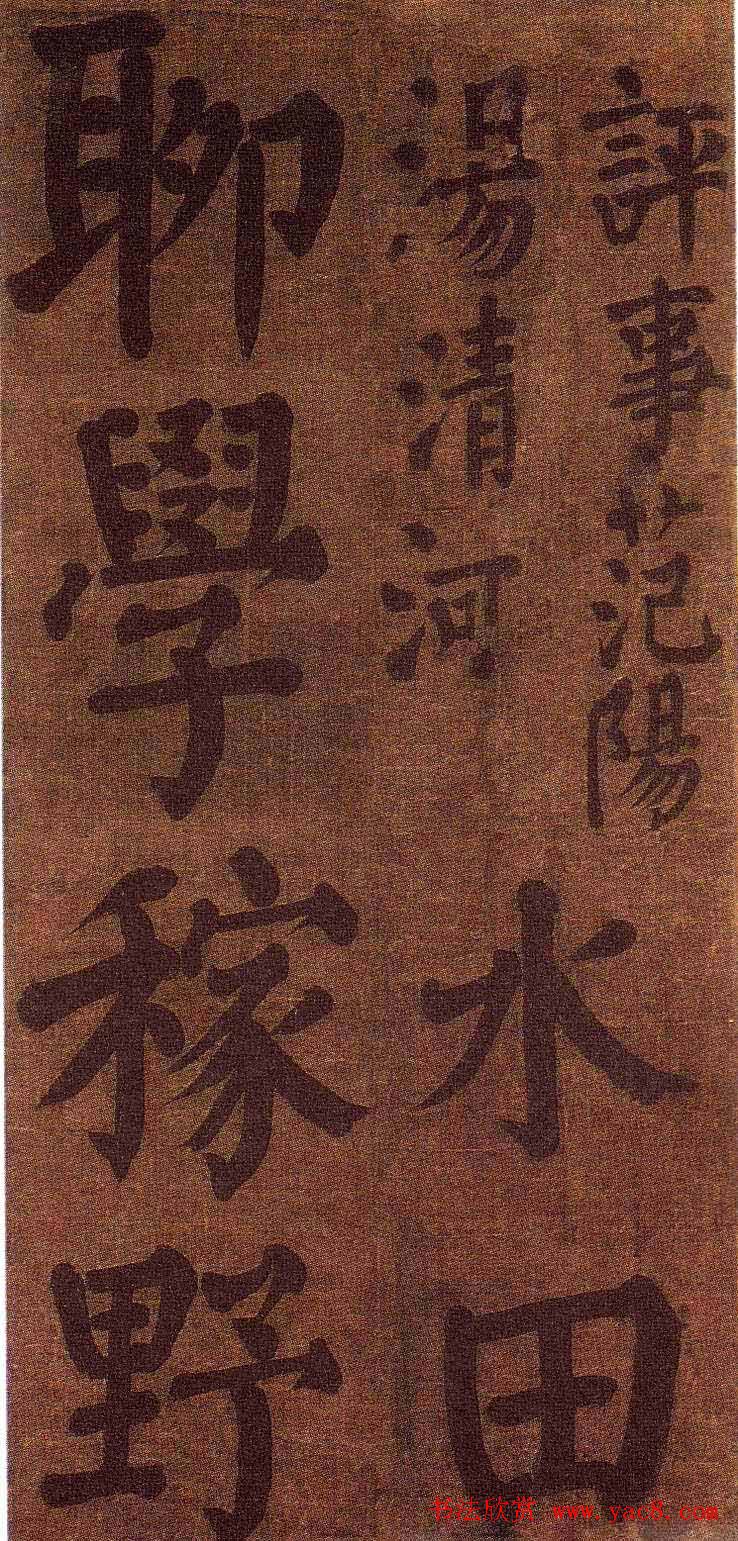 評事范陽
湯清河
水田
聊學稼野
书法欣赏 www.yac8.com